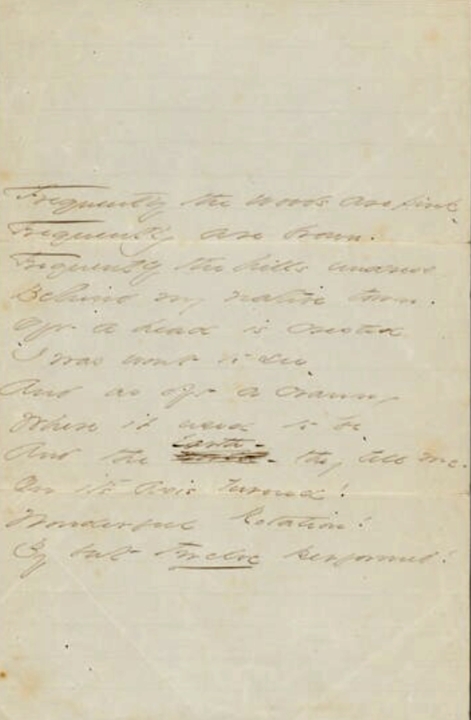 Frequently the woods are pink
Frequently, are brown.
Frequently the hills undress
Behind my native town.
Oft a head is crested
I was wont to see
And as oft a cranny
Where it used to be
And the world - earth - they tell me.
On it's Axis turned!
Wonderful Rotation!
By but Twelve performed!